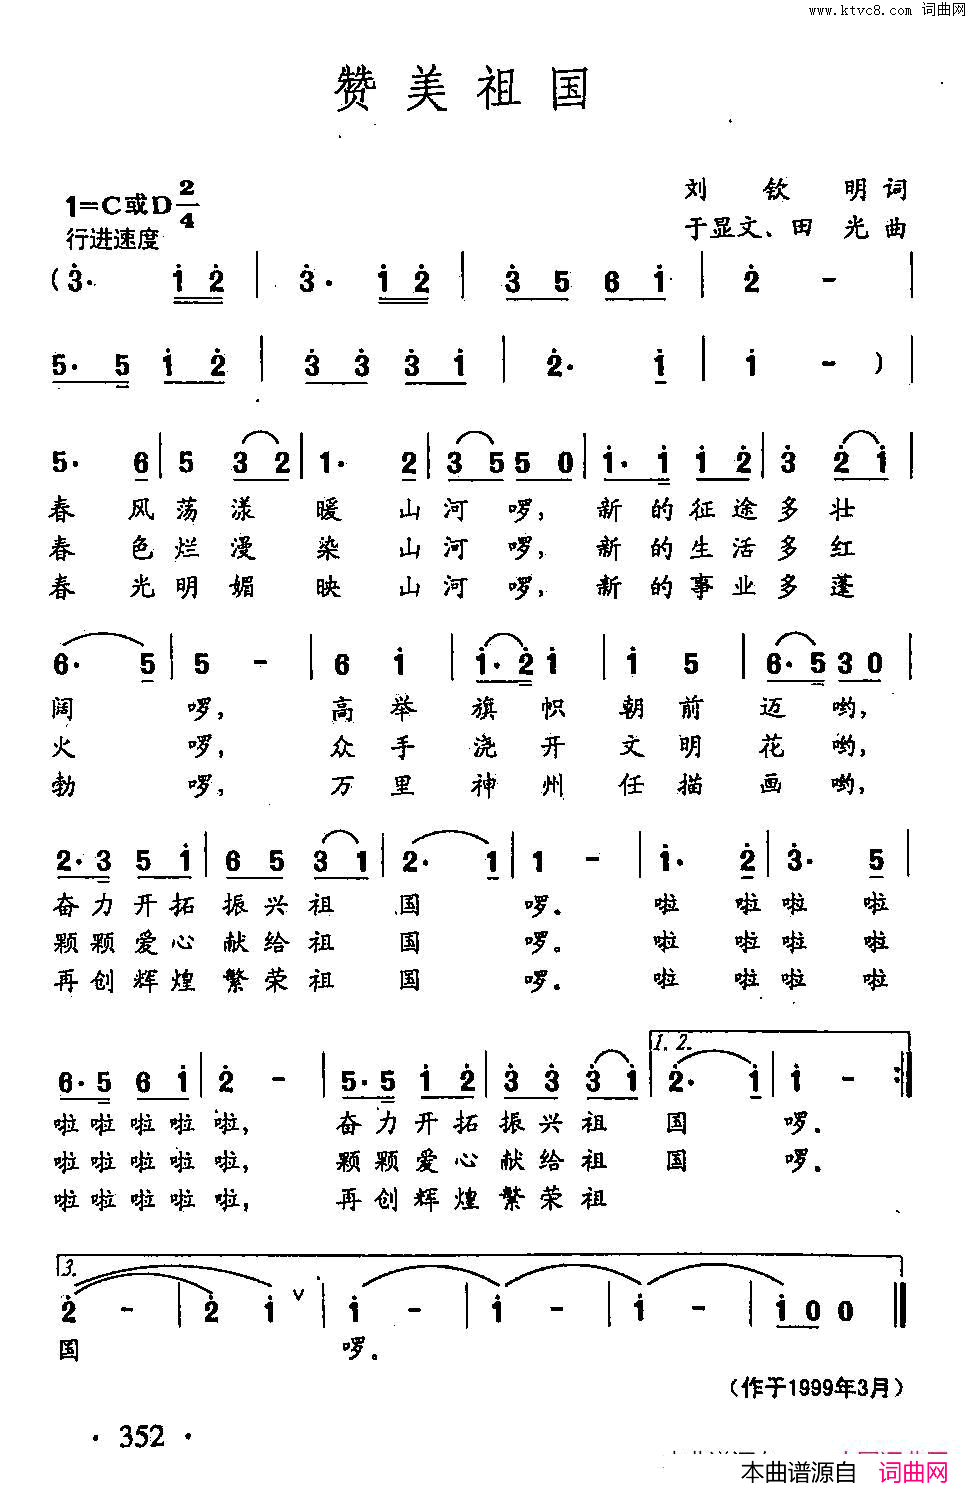 www.ktvc8.com 词曲网
赞美祖国
1=C或D 2/4
刘 钦 明 词
行进速度
于显文、田 光 曲
(3· 1 2 | 3· 1 2 | 3 5 6 1 | 2 - |
5· 5 1 2 | 3 3 3 1 | 2· 1 | 1 - ) |
5· 6 | 5 3 2 | 1· 2 | 3 5 5 0 | 1· 1 1 2 | 3 2 1 |
春 风 荡 漾 暖 山 河 啰, 新 的 征 途 多 壮
春 色 烂 漫 染 山 河 啰, 新 的 生 活 多 红
春 光 明 媚 映 山 河 啰, 新 的 事 业 多 蓬
6· 5 | 5 - | 6 1 | 1· 2 1 | 1 5 | 6· 5 3 0 |
阔 啰, 高 举 旗 帜 朝 前 迈 哟,
火 啰, 众 手 浇 开 文 明 花 哟,
勃 啰, 万 里 神 州 任 描 画 哟,
2· 3 5 1 | 6 5 3 1 | 2· 1 | 1 - | 1· 2 | 3· 5 |
奋 力 开 拓 振 兴 祖 国 啰。 啦 啦 啦 啦
颗 颗 爱 心 献 给 祖 国 啰。 啦 啦 啦 啦
再 创 辉 煌 繁 荣 祖 国 啰。 啦 啦 啦 啦
1. 2.
6· 5 6 1 | 2 - | 5· 5 1 2 | 3 3 3 1 | 2· 1 | 1 - :|
啦 啦 啦 啦 啦, 奋 力 开 拓 振 兴 祖 国 啰。
啦 啦 啦 啦 啦, 颗 颗 爱 心 献 给 祖 国 啰。
啦 啦 啦 啦 啦, 再 创 辉 煌 繁 荣 祖
3.
2 - | 2 1 ∨ | 1 - | 1 - | 1 - | 1 0 0 ||
国 啰。
(作于1999年3月)
· 352 ·
本曲谱源自 词曲网